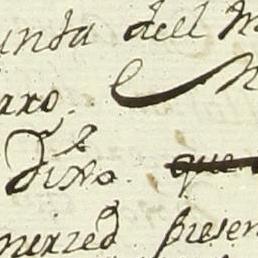 unta dell M
axo.
Dixo. que
merzed presen